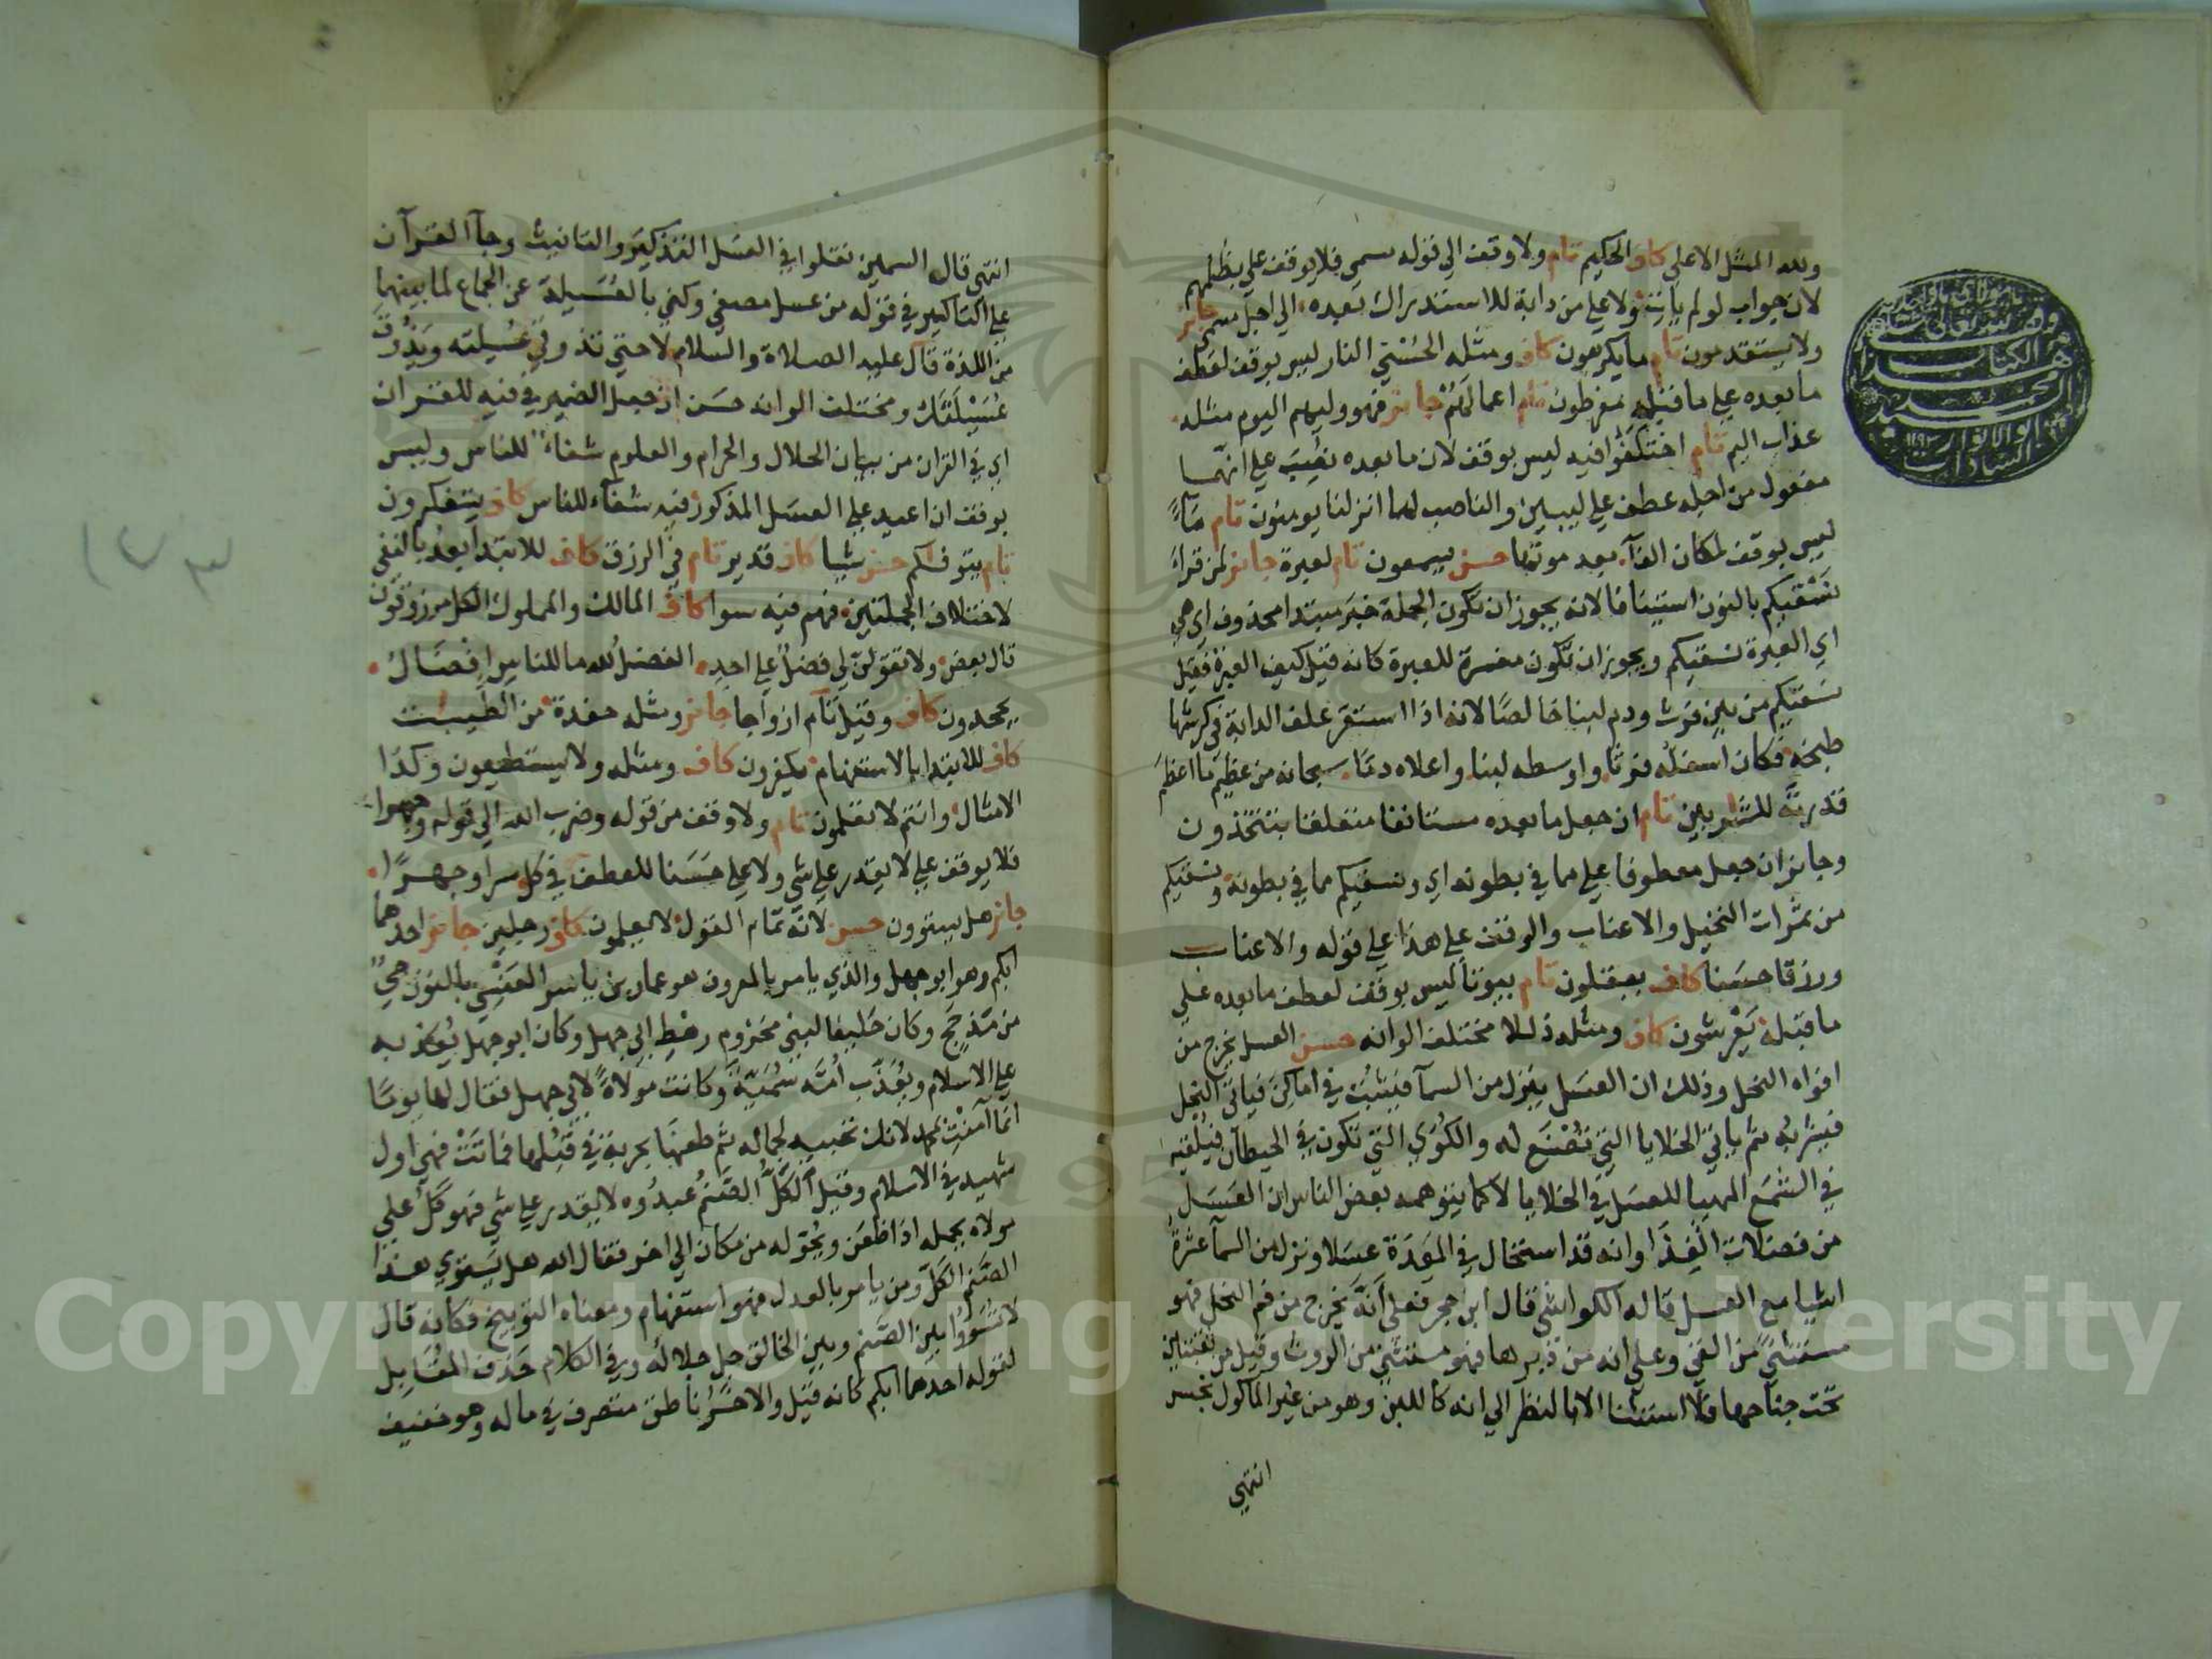 ولله المثل الاعلي كاف الحكيم تام ولا وقف الي قوله مسمي فلا يوقف علي بظلمهم
لان جواب لو لم يات ولا علي من دابة للاستدراك بعده الي اجل مسمي جائز
ولا يستقدمون تام ما يكرهون كاف ومثله الحسني النار ليس بوقف لعطف
ما بعده علي ما قبله مفرطون تام اعمالهم جائز فهو وليهم اليوم مثله
عذاب اليم تام اختلفوا فيه ليس بوقف لان ما بعده نصب علي انهما
مفعول من اجله عطف علي ليبين والناصب لهما انزلنا يومنون تام مآء
ليس بوقف لمكان الفآء بعد موتها حسن يسمعون تام لعبرة جائز لمن قرا
نسقيكم بالنون استينافا لانه يجوز ان تكون الجملة خبر مبتدا محذوف اي هي
اي العبرة نسقيكم ويجوز ان تكون مفسرة للعبرة كانه قيل كيف العبرة فقيل
نسقيكم من بين فرث ودم لبنا خالصا لانه اذا استقر علف الدابة في كرشها
طبخه فكان اسفله فرثا واوسطه لبنا واعلاه دما سبحانه من عظيم ما اعظم
قدرته للشربين تام ان جعل ما بعده مستانفا متعلقا بتتخذون
وجائز ان جعل معطوفا علي مما في بطونه اي ونسقيكم مما في بطونه ونسقيكم
من ثمرات النخيل والاعناب والوقف علي هذا علي قوله والاعناب
ورزقا حسنا كاف يعقلون تام بيوتا ليس بوقف لعطف ما بعده علي
ما قبله يعرشون كاف ومثله ذللا مختلف الوانه حسن العسل يخرج من
افواه النحل وذلك ان العسل ينزل من السمآ فيثبت في اماكن فياتي النحل
فيشربه ثم ياتي الخلايا التي تصنع له والكوي التي تكون في الحيطان فيلقيه
في الشمع المهيا للعسل في الخلايا لا كما يتوهمه بعض الناس ان العسل
من فضلات الغذا وانه قد استحال في المعدة عسلا ونزل من السمآ عشرة
اشيا مع العسل قاله الكواشي قال ابن حجر فعلي انه يخرج من فم النحل فهو
مستثني من القي وعلي انه من دبرها فهو مستثني من الروث وقيل من ثقبتين
تحت جناحها فلا استثنا الا بالنظر الي انه كاللبن وهو من غير الماكول نجس
انتهي
انتهي قال السمين نقلوا في العسل التذكير والتانيث وجآ القرآن
علي التاكير في قوله من عسل مصفي وكني بالعسيلة عن الجماع لما بينهما
من اللذة قال عليه الصلاة والسلام لا حتي تذوقي عسيلته ويذوق
عسيلتك ومختلف الوانه حسن ان جعل الضمير في فيه للقران
اي في القران من بيان الحلال والحرام والعلوم شفاء للناس وليس
بوقف ان اعيد علي العسل المذكور فيه شفآء للناس كاف يتفكرون
تام يتوفاكم حسن شيا كاف قدير تام في الرزق كاف للابتدا بعد بالنفي
لاختلاف الجملتين فهم فيه سوا كاف المالك والمملوك الكل مرزوقون
قال بعض ولا تقولن لي فضل علي احد الفضل لله ما للناس افضال
يجحدون كاف وقيل تام ازواجا جائز ومثله حفدة من الطيبات
كاف للابتدا بالاستفهام يكفرون كاف ومثله ولا يستطيعون وكذا
الامثال وانتم لا تعلمون تام ولا وقف من قوله وضرب الله الي قوله وجهرا
فلا يوقف علي لا يقدر علي شي ولا علي حسنا للعطف في كل سرا وجهرا
جائز هل يستوون حسن لانه تمام القول لا يعلمون كاف رجلين جائز احدهما
ابكم وهو ابو جهل والذي يامر بالمعروف هو عمار بن ياسر العنسي بالنون حي
من مذحج وكان حليفا لبني مخزوم رهط ابي جهل وكان ابو جهل يعذبه
علي الاسلام ويعذب امه سمية وكانت مولاة لابي جهل فقال لها يوما
انما آمنت بمحمد لانك تحبيه لجماله ثم طعنها بحربة في قبلها فماتت فهي اول
شهيد في الاسلام وقيل الكل الصنم عبدوه لا يقدر علي شي فهو كل علي
مولاه يحمله اذا ظعن ويحوله من مكان الي اخر فقال الله هل يستوي هذا
الصنم الكل ومن يامر بالعدل فهو استفهام ومعناه التوبيخ فكانه قال
لا تسووا بين الصنم وبين الخالق جل جلاله وفي الكلام حذف المقابل
لقوله احدهما ابكم كانه قيل والاخر ناطق متصرف في ماله وهو خفيف
١٧٣
Copyright © King Saud University